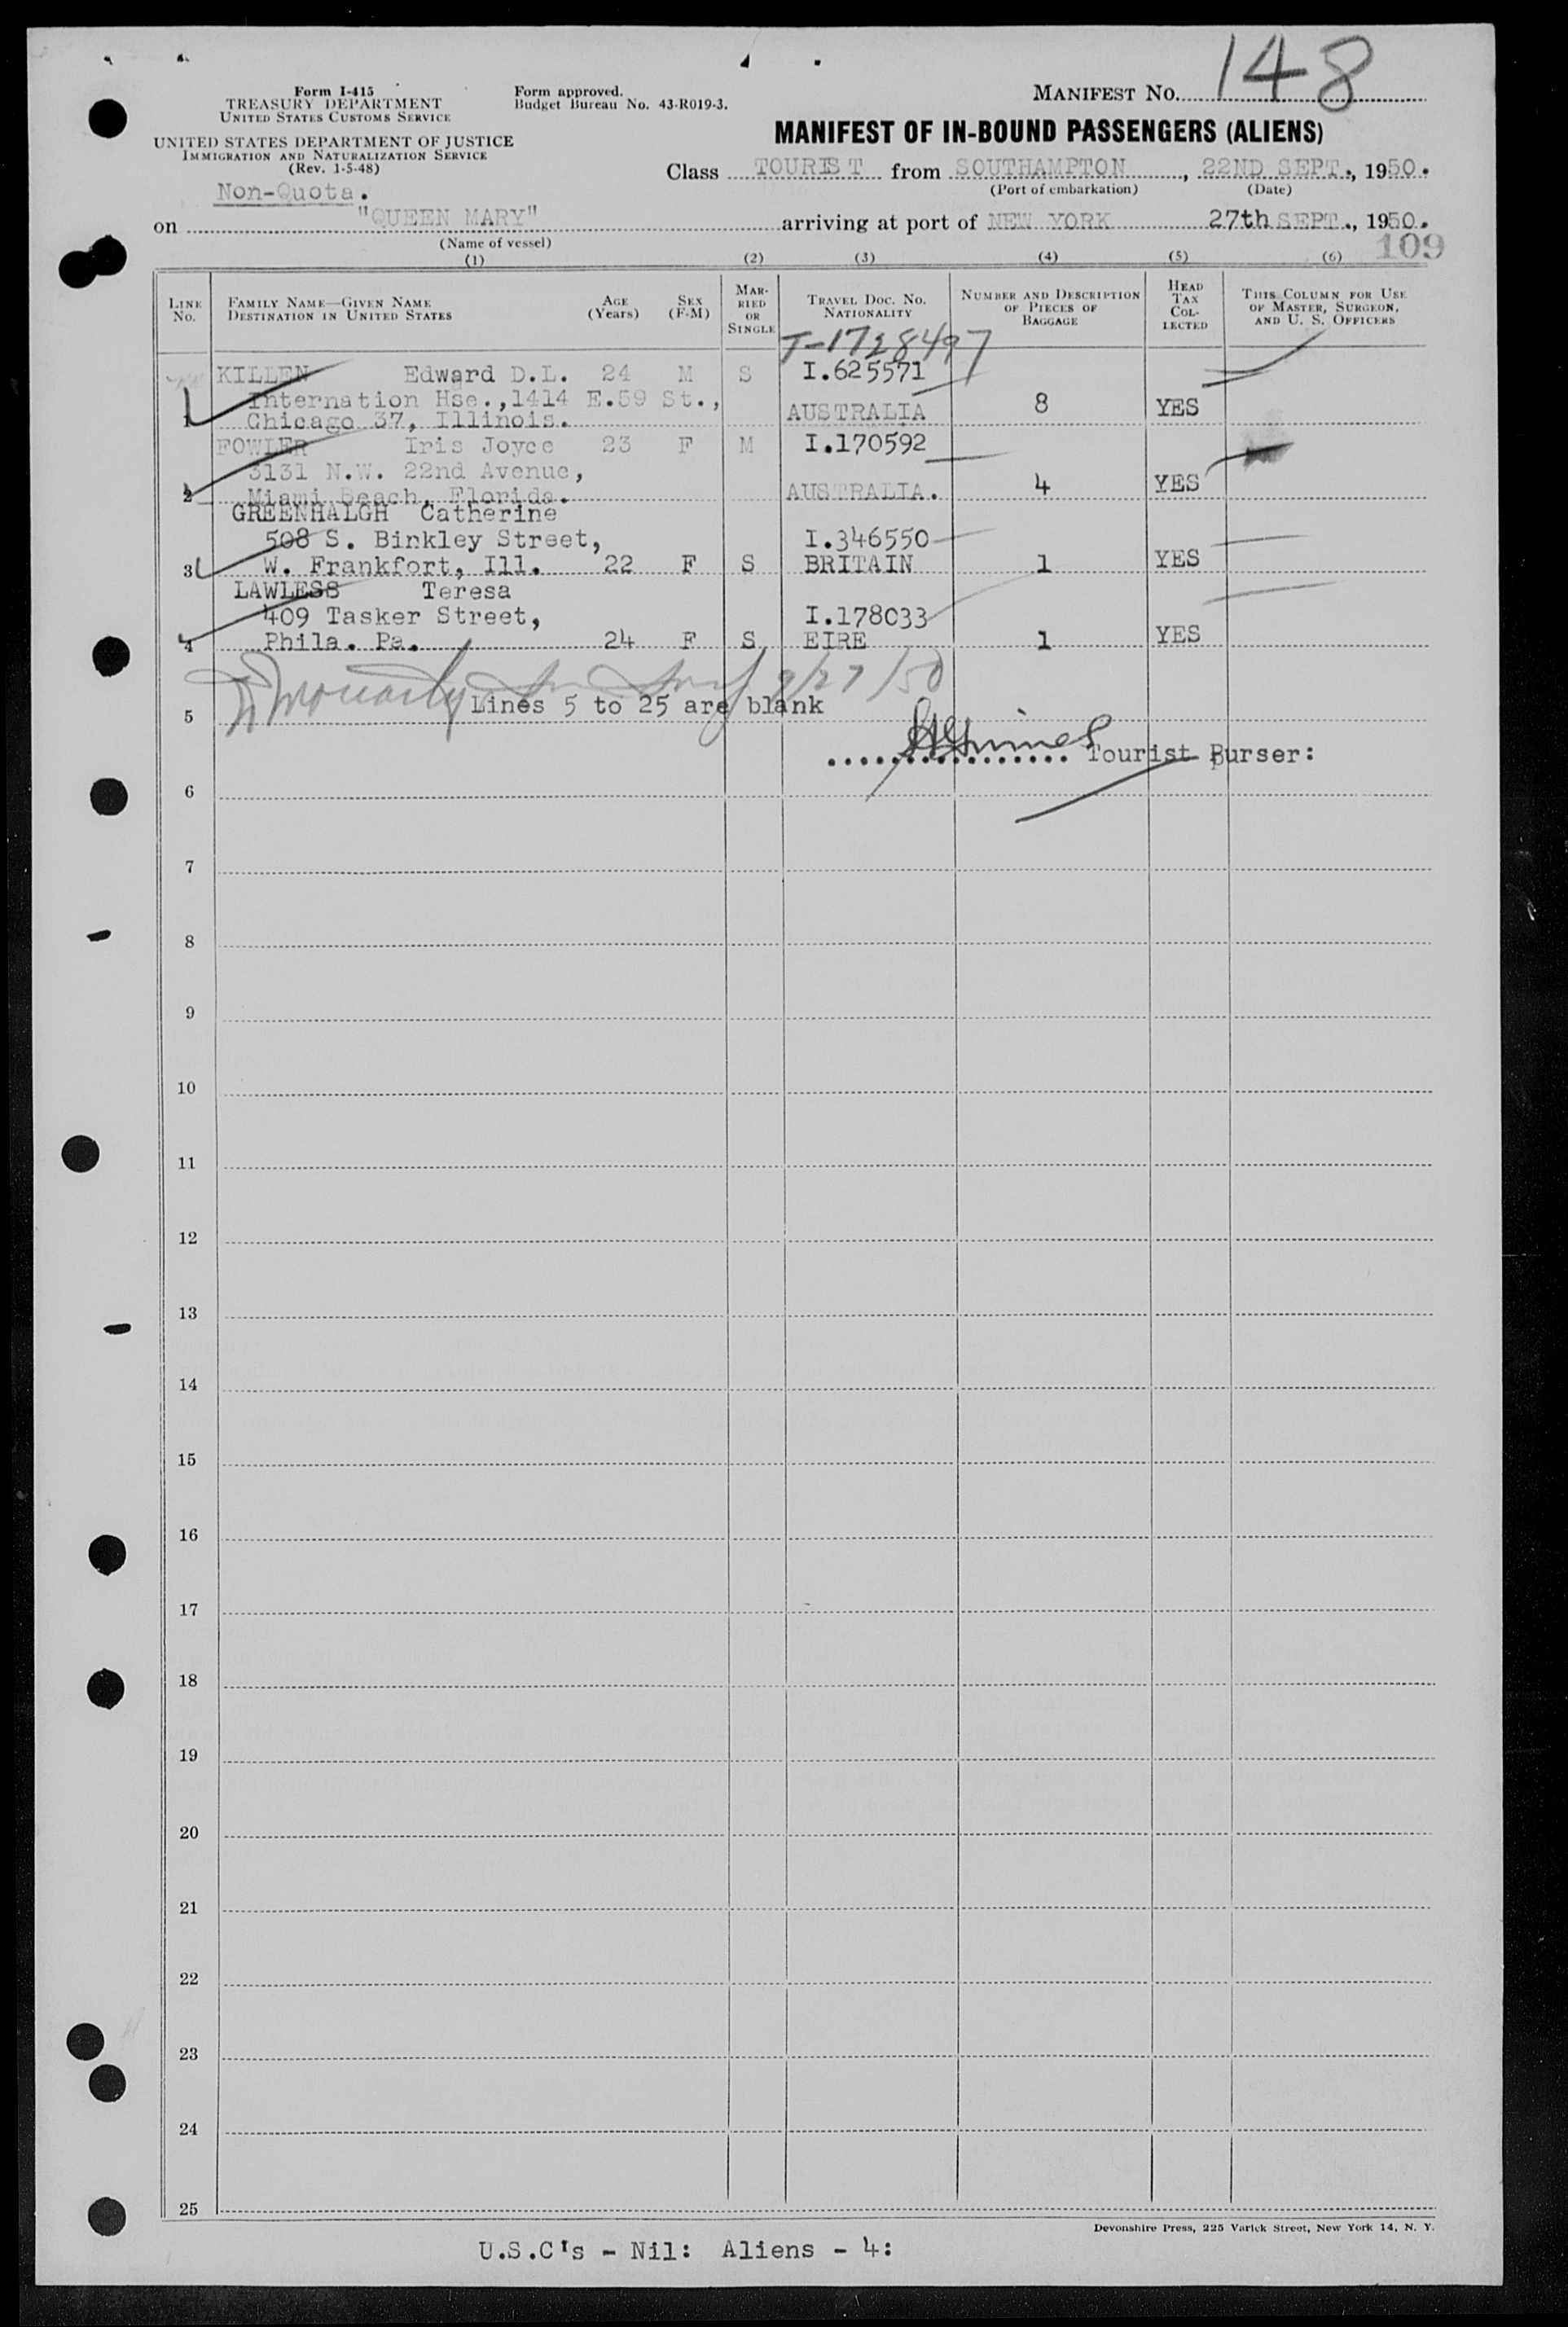 Form I-415
TREASURY DEPARTMENT
UNITED STATES CUSTOMS SERVICE
UNITED STATES DEPARTMENT OF JUSTICE
IMMIGRATION AND NATURALIZATION SERVICE
(Rev. 1-5-48)
Form approved.
Budget Bureau No. 43-R019-3.
MANIFEST NO. 148
MANIFEST OF IN-BOUND PASSENGERS (ALIENS)
Class TOURIST from SOUTHAMPTON, 22ND SEPT., 1950.
(Port of embarkation) (Date)
Non-Quota.
on "QUEEN MARY" arriving at port of NEW YORK 27th SEPT., 1950.
(Name of vessel)
109
(1) (2) (3) (4) (5) (6)
LINE NO. FAMILY NAME—GIVEN NAME DESTINATION IN UNITED STATES AGE (Years) SEX (F-M) MARRIED OR SINGLE TRAVEL DOC. NO. NATIONALITY NUMBER AND DESCRIPTION OF PIECES OF BAGGAGE HEAD TAX COLLECTED THIS COLUMN FOR USE OF MASTER, SURGEON, AND U. S. OFFICERS
T-1728497
KILLEN Edward D.L. 24 M S I.625571
Internation Hse.,1414 E.59 St.,
1 Chicago 37, Illinois. AUSTRALIA 8 YES
FOWLER Iris Joyce 23 F M I.170592
3131 N.W. 22nd Avenue,
2 Miami Beach, Florida. AUSTRALIA. 4 YES
GREENHALGH Catherine
508 S. Binkley Street, I.346550
3 W. Frankfort, Ill. 22 F S BRITAIN 1 YES
LAWLESS Teresa
409 Tasker Street, I.178033
4 Phila. Pa. 24 F S EIRE 1 YES
9/27/50
5 Lines 5 to 25 are blank
Tourist Purser:
6
7
8
9
10
11
12
13
14
15
16
17
18
19
20
21
22
23
24
25
Devonshire Press, 225 Varick Street, New York 14, N. Y.
U.S.C's - Nil: Aliens - 4: